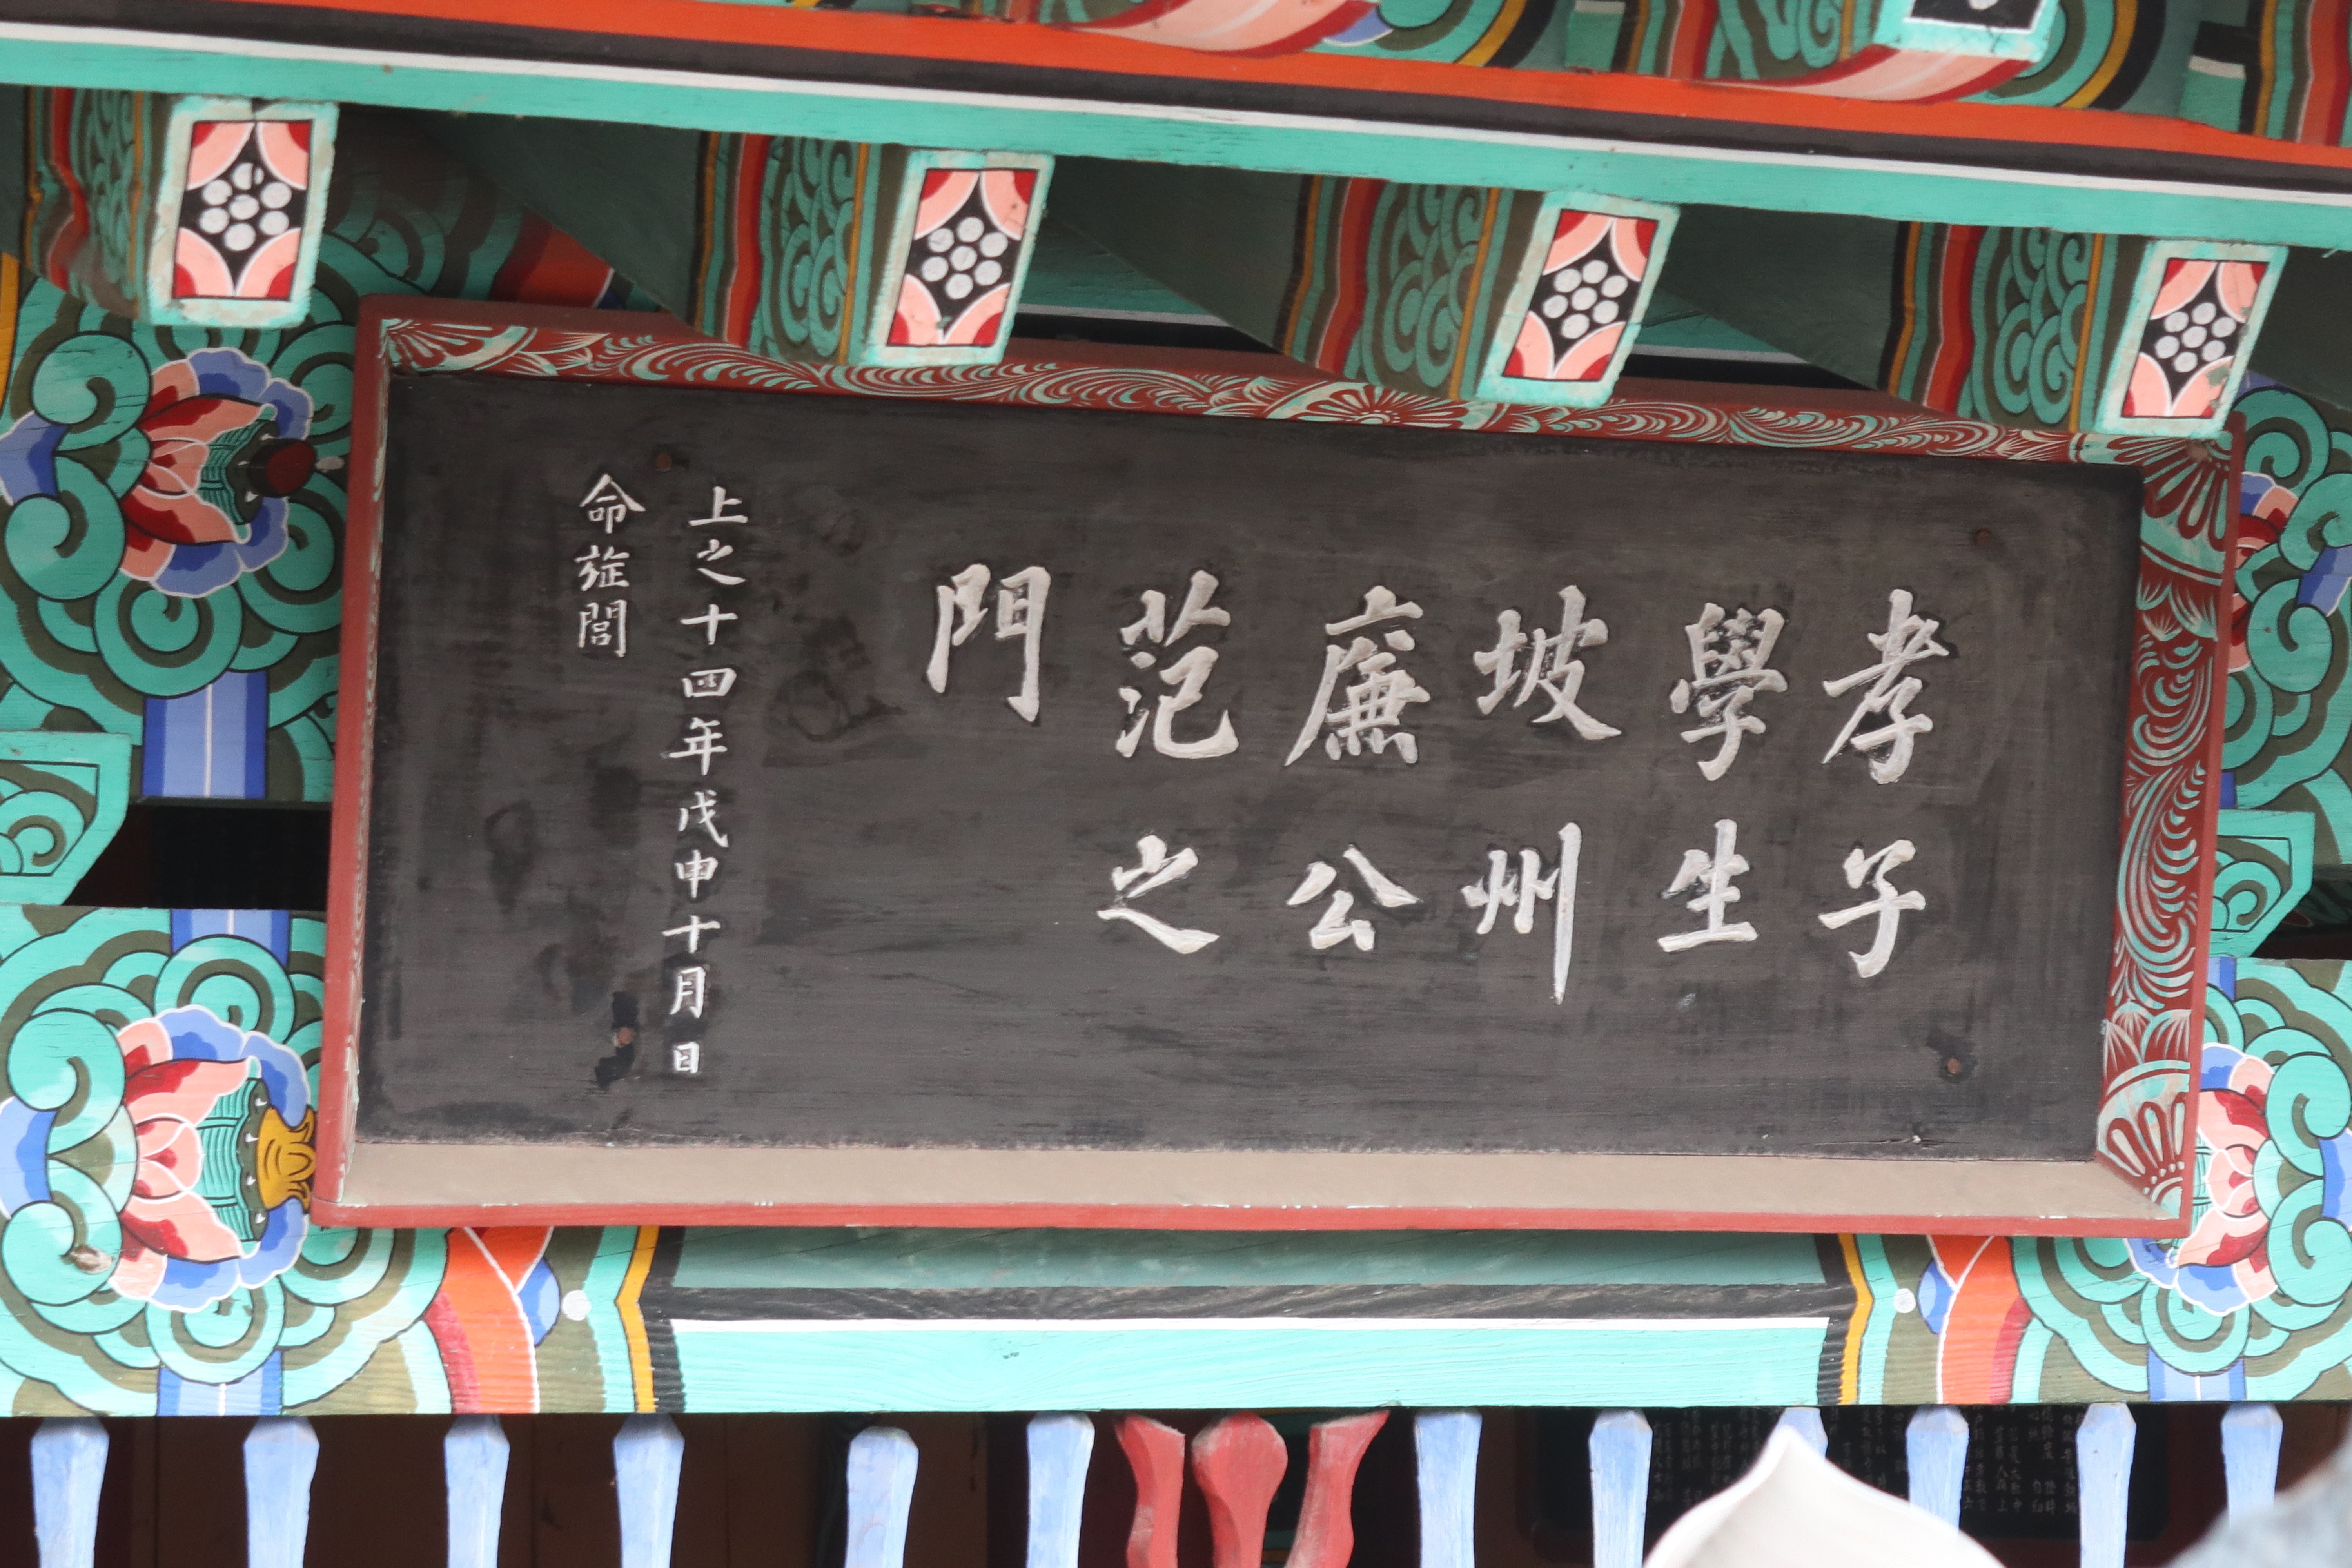 孝子
學生
坡州
廉公
范之
門
上之十四年戊申十月日
命旌閭